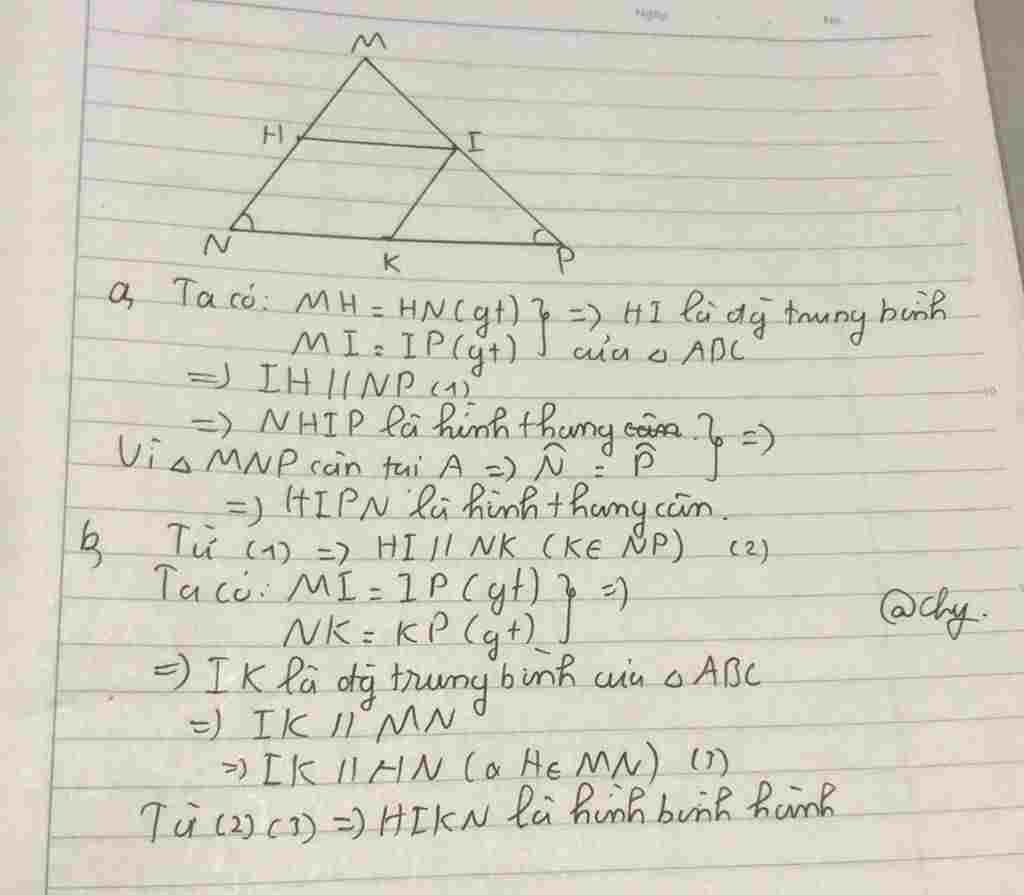 Ngày No.
M
H I
N K P
a, Ta có: MH = HN (gt) } => HI là đg trung bình
MI = IP (gt) } của △ ABC
=> IH // NP (1)
=> NHIP là hình thang cân. } =>
Vì △ MNP cân tại A => N̂ = P̂ }
=> HIPN là hình thang cân.
b, Từ (1) => HI // NK (K∈ NP) (2)
Ta có: MI = IP (gt) } =>
NK = KP (gt) }
@chy.
=> IK là đg trung bình của △ ABC
=> IK // MN
=> IK // HN (H∈ MN) (3)
Từ (2) (3) => HIKN là hình bình hành